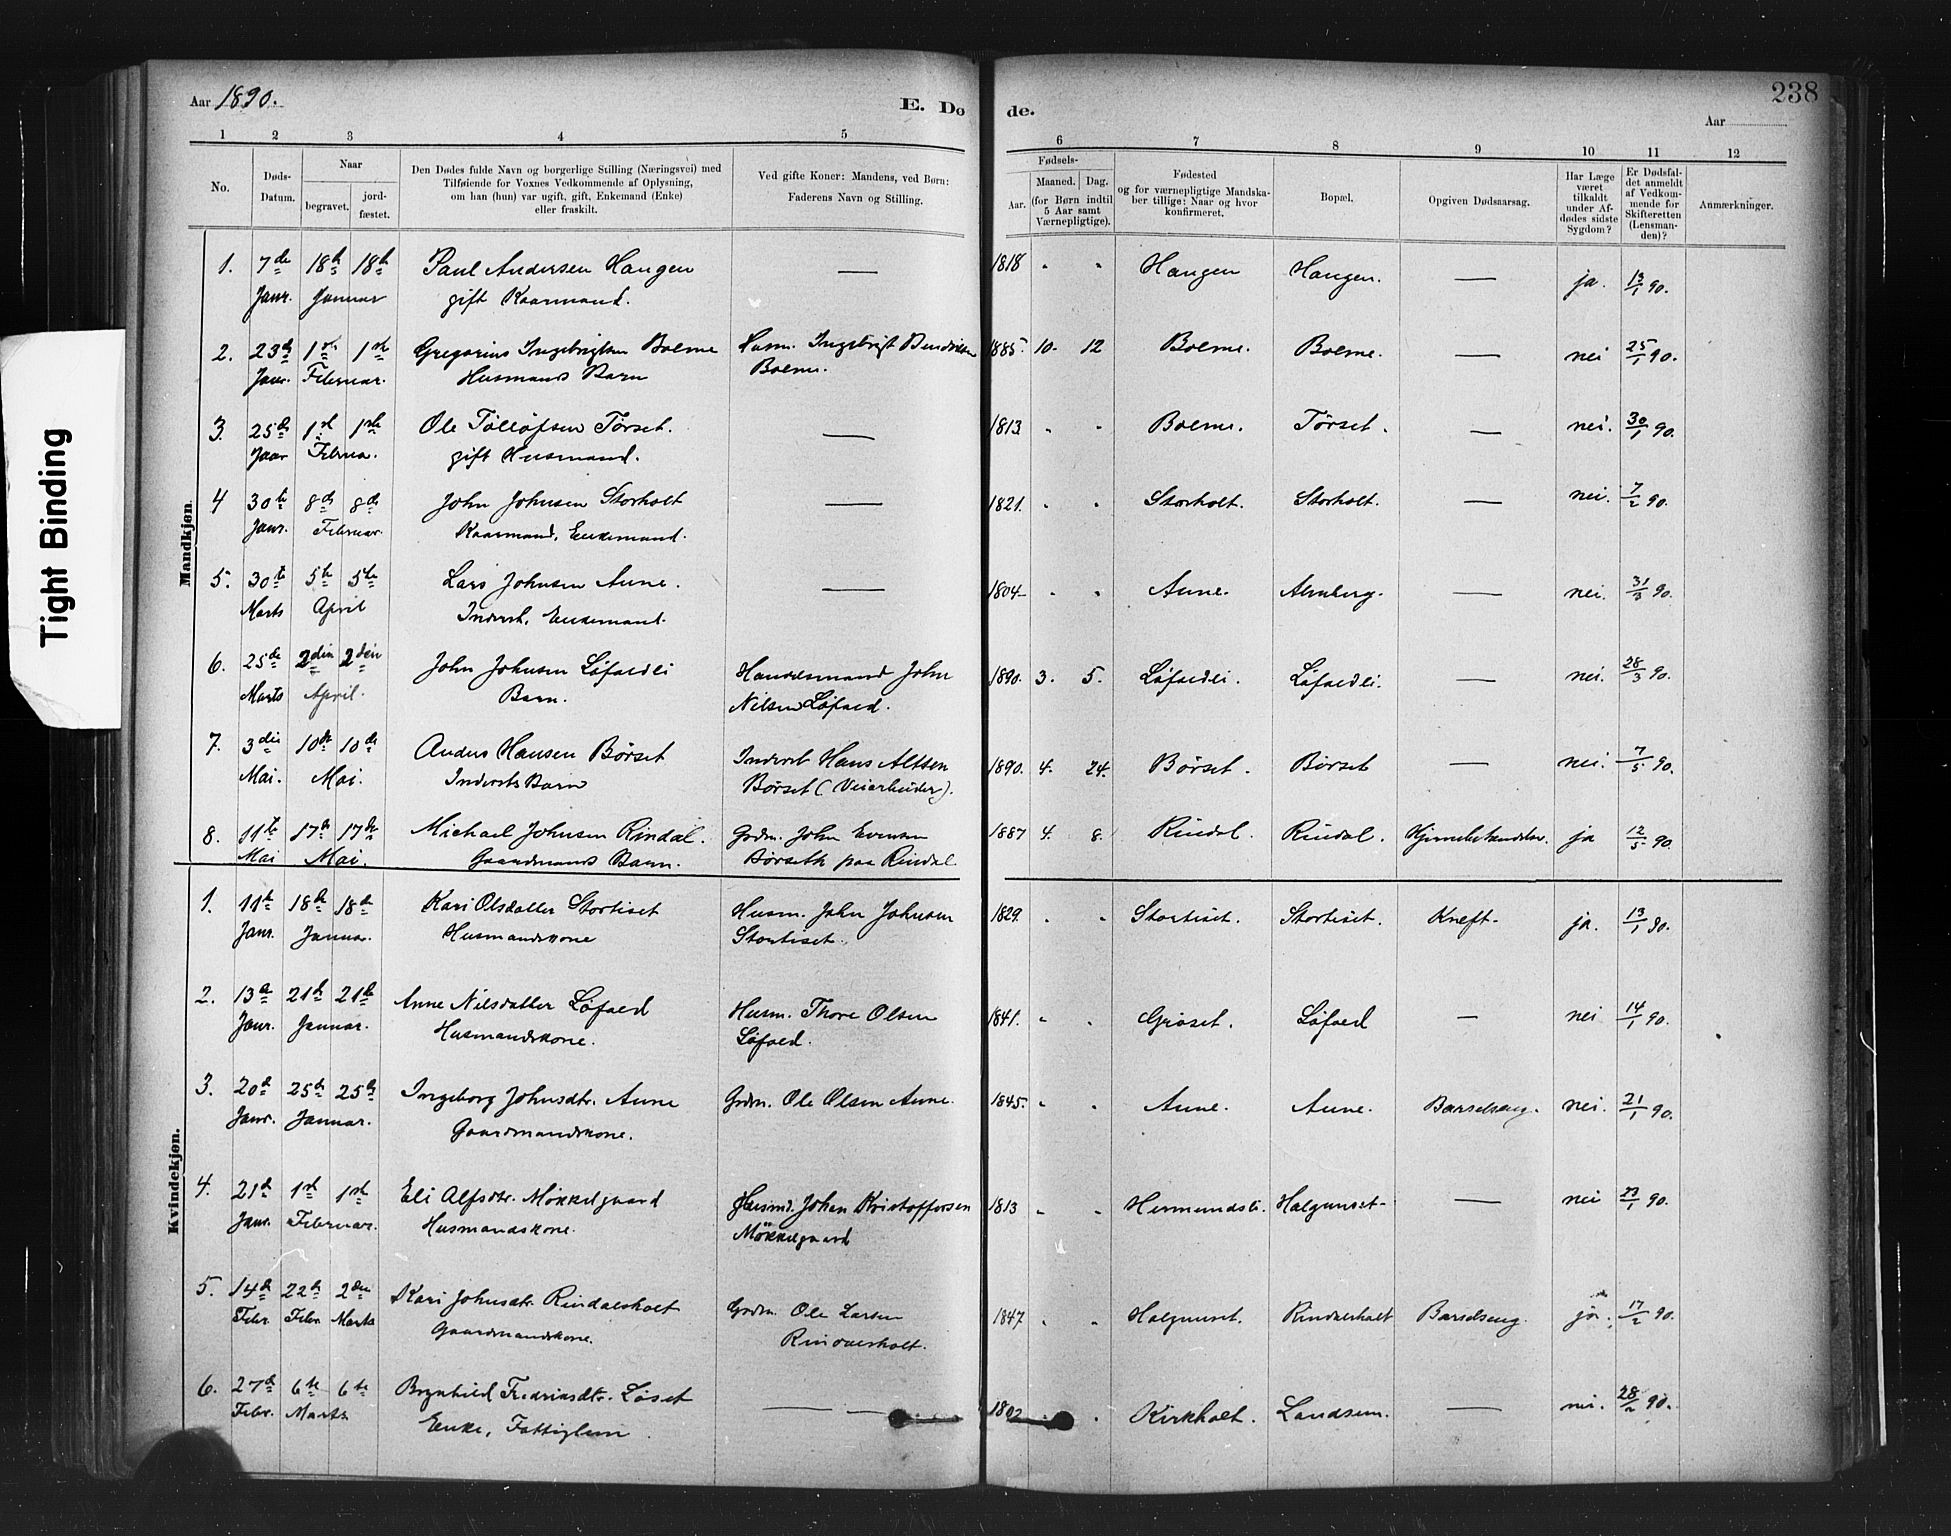 Tight Binding
Aar 1890.
E. Do
de.
238
Aar
1 2 3 4 5 6 7 8 9 10 11 12
No.
Døds-
Datum.
Naar
begravet.
jord-
fæstet.
Den Dødes fulde Navn og borgerlige Stilling (Næringsvei) med
Tilføiende for Voxnes Vedkommende af Oplysning,
om han (hun) var ugift, gift, Enkemand (Enke)
eller fraskilt.
Ved gifte Koner: Mandens, ved Børn:
Faderens Navn og Stilling.
Fødsels-
Aar.
Maaned. Dag.
(for Børn indtil
5 Aar samt
Værnepligtige).
Fødested
og for værnepligtige Mandska-
ber tillige: Naar og hvor
konfirmeret.
Bopæl.
Opgiven Dødsaarsag.
Har Læge
været
tilkaldt
under Af-
dødes sidste
Sygdom?
Er Dødsfal-
det anmeldt
af Vedkom-
mende for
Skifteretten
(Lensman-
den)?
Anmærkninger.
Mandkjøn.
1. 7de 18de 18de Paul Andersen Haugen — 1818 " " Haugen Haugen. — ja. 13/1 90.
Janr. Januar gift Kaarmand.
2. 23de 1ste 1ste Gregorius Ingebrigtsen Bolme Husm. Ingebrigt Bendriksen 1885. 10. 12 Bolme. Bolme. — nei 25/1 90.
Janr. Februar. Husmands Barn Bolme.
3. 25de 1ste 1ste Ole Tølløfsen Tørset. — 1813 " " Bolme. Tørset. — nei. 30/1 90.
Janr Februa. gift Husmand.
4 30te 8de 8de John Johnsen Storholt — 1821. " " Storholt. Storholt. — nei. 7/2 90.
Janr. Februar. Kaarmand, Enkemand.
5. 30te 5te 5te Lars Johnsen Aune. — 1804 " " Aune. Almberg. — nei. 31/3 90.
Marts April Inderst, Enkemand.
6. 25de 2den 2den John Johnsen Løfaldli Handelsmand John 1890. 3. 5. Løfaldli. Løfaldli. — nei. 28/3 90.
Marts April. Barn. Nilsen Løfald.
7. 3die 10de 10de Anders Hansen Børset Inderst Hans 1890. 4. 24. Børset. Børset — nei. 7/5 90.
Mai. Mai. Indersts Barn Børset (Veiarbeider).
8. 11te 17de 17de Michael Johnsen Rindal. Grdm. John Evensen 1887 4. 8. Rindal. Rindal. Hjernebetændelse. ja 12/5 90.
Mai Mai. Gaardmands Barn. Børseth paa Rindal.
Kvindekjøn.
1. 11te 18de 18de Kari Olsdatter Stortiset Husm. John Johnsen 1829. " " Stortiset. Stortiset. Kreft. ja. 13/1 90.
Janr. Januar. Husmandskone Stortiset.
2. 13de 21de 21de Anne Nilsdatter Løfald Husm. Thore Olsen 1841. " " Grøset. Løfald — nei 14/1 90.
Janr. Januar. Husmandskone. Løfald.
3. 20de 25de 25de Ingeborg Johnsdtr. Aune Grdm. Ole Olsen Aune. 1845. " " Aune. Aune. Barselseng. nei. 21/1 90.
Janr. Januar. Gaardmandskone.
4. 21de 1ste 1ste Eli Alfsdtr. Møkkelgaard Husmd. Johan Kristoffersen 1813 " " Hermundsli. Halgunset — nei 23/1 90.
Janr. Februar. Husmandskone. Møkkelgaard
5. 14de 22de 2den Kari Johnsdtr. Rindalsholt Grdm. Ole Larsen 1847 " " Halgunset. Rindalsholt Barselseng. ja. 17/2 90.
Febr. Febr. Marts Gaardmandskone. Rindalsholt.
6. 27de 6te 6te Brynhild Fredriksdtr. Løset — — 1802 " Kirkholt. Landsem. — nei. 28/2 90.
Febr. Marts Enke, Fattiglem.